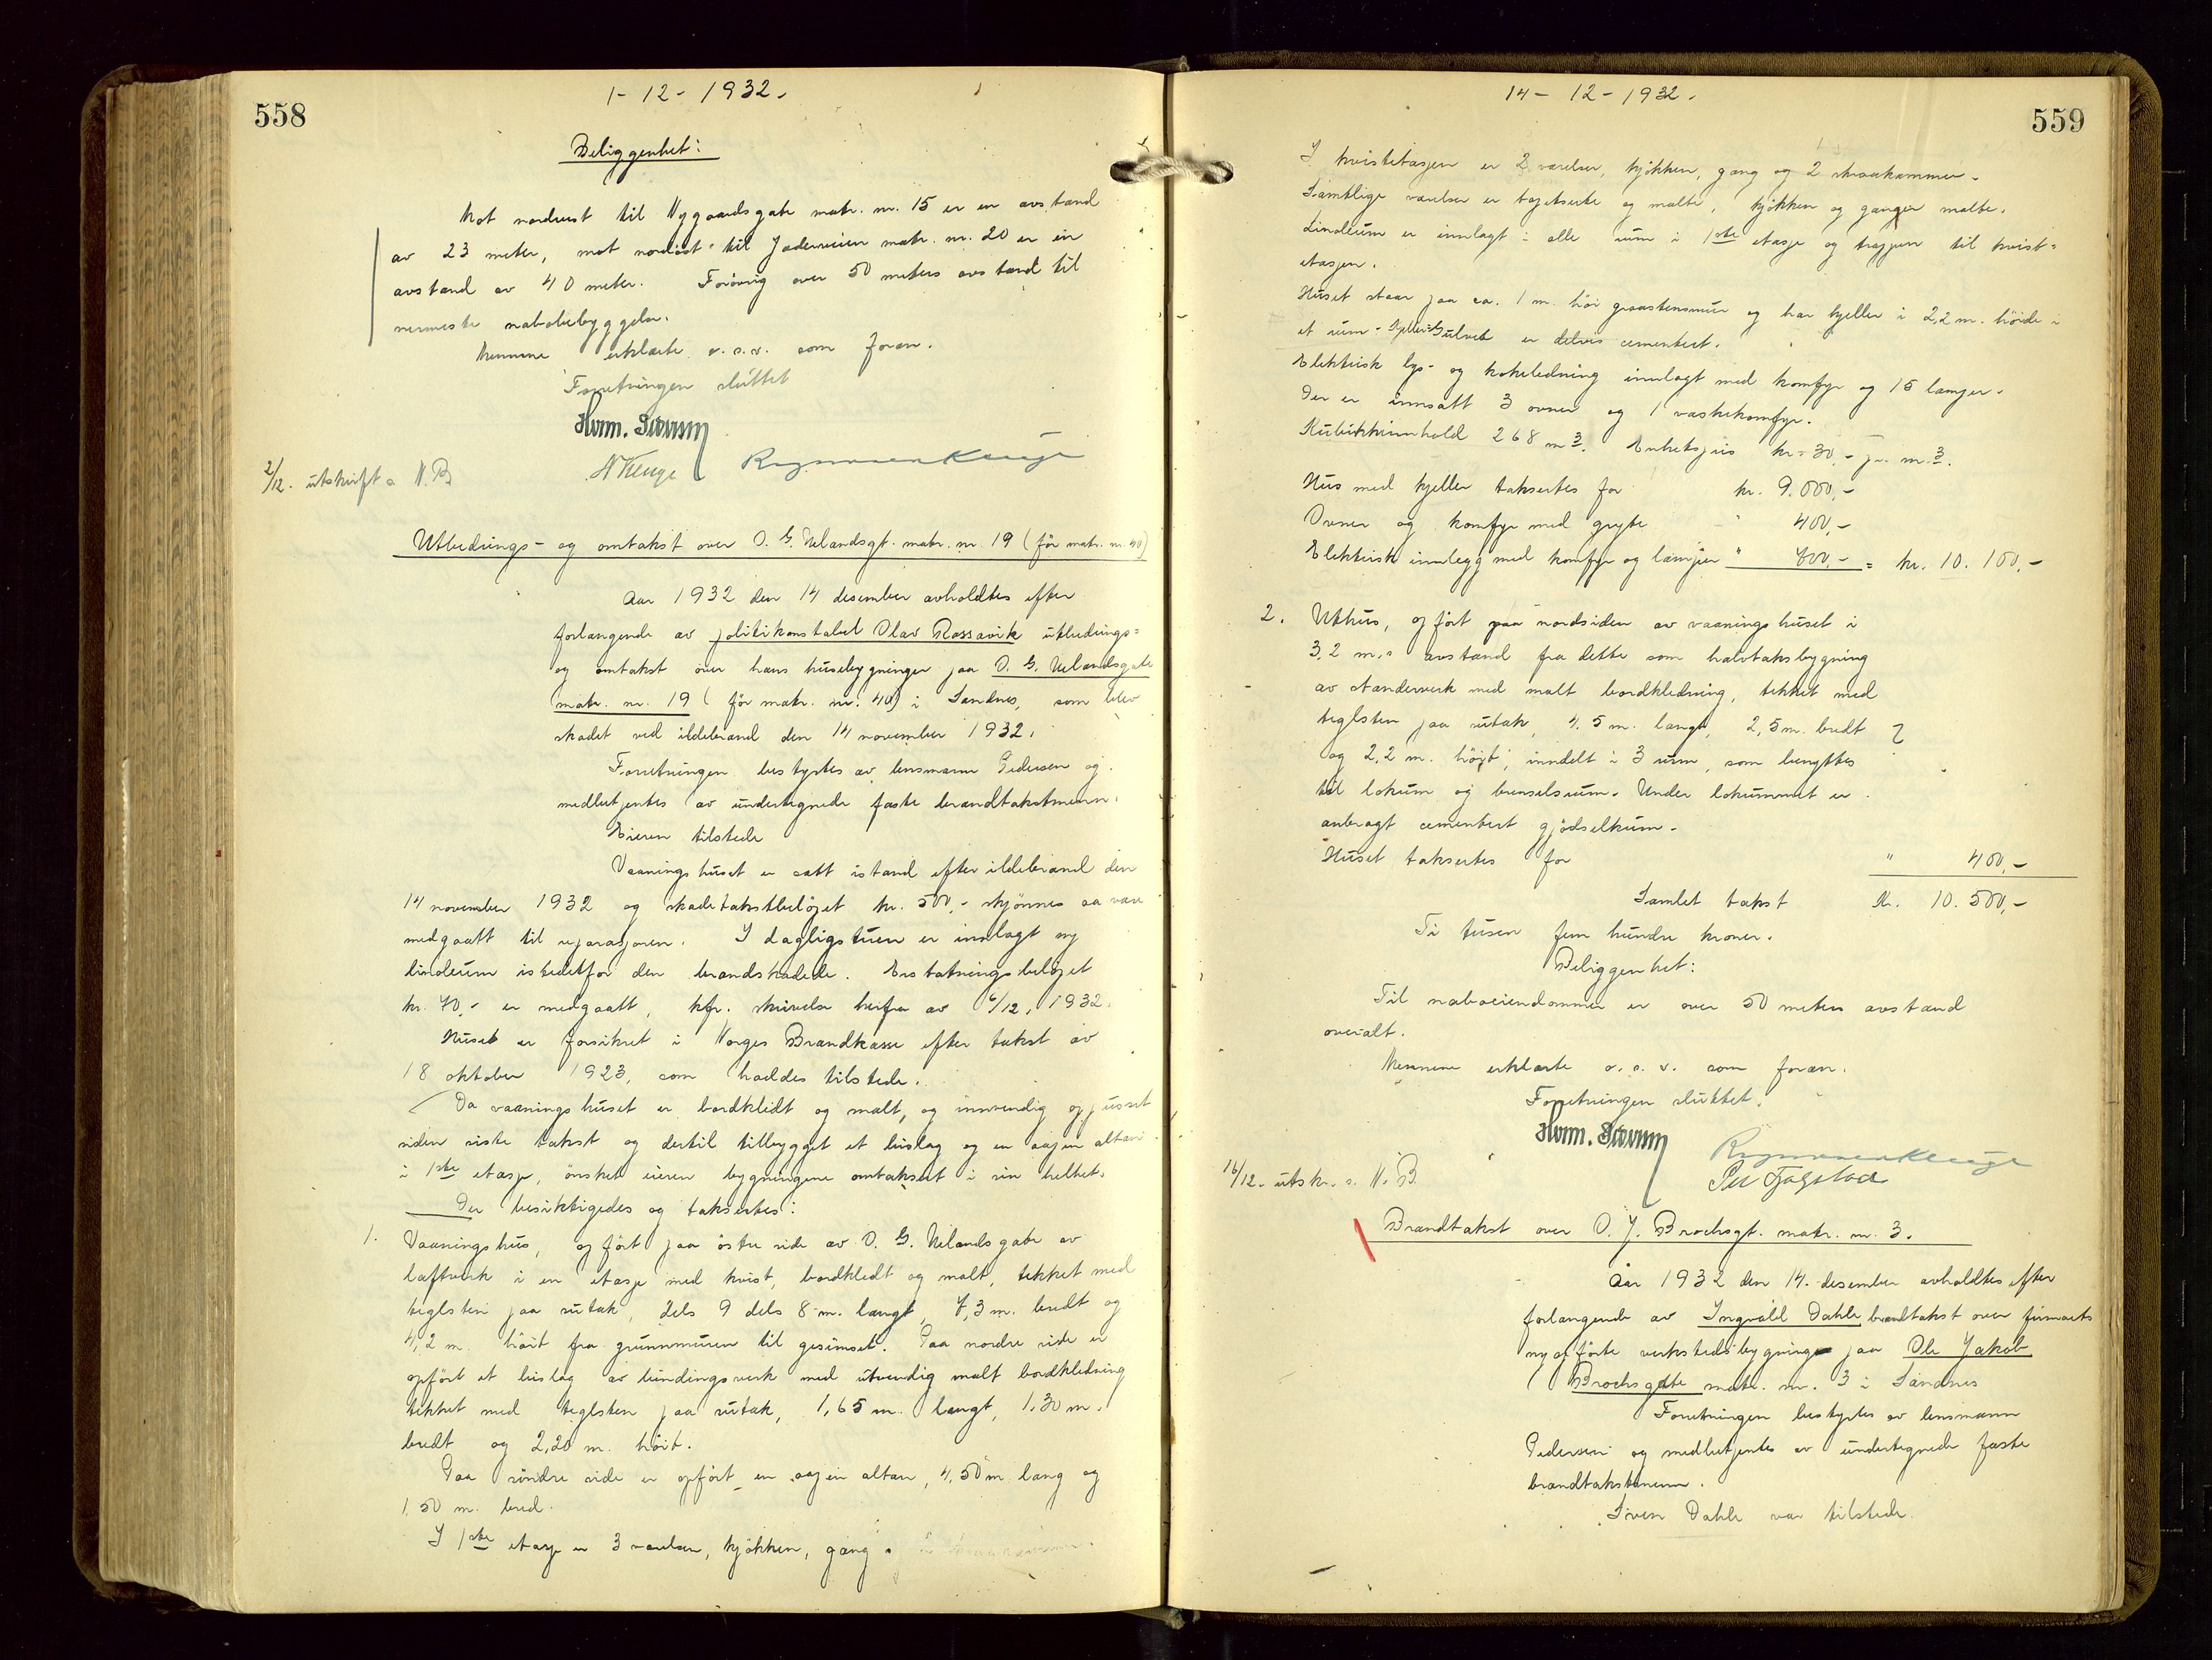 558
1-12-1932.
Beliggenhet:
Mot nordvest til Nygaardsgate matr. nr. 15 er en avstand
av 23 meter, mot nordöst til Jaderveien matr. nr. 20 er en
avstand av 40 meter. Forövrig over 50 meters avstand til
nermeste nabobebyggelse.
Mennene erklærte o.s.v. som foran.
Forretningen sluttet
Herm.
2/12. utskrift s. N.B.
Utbedrings- og omtakst over O. G. Uelandsgt. matr. nr. 19 (för matr. nr. 40)
Aar 1932 den 14 desember avholdtes efter
forlangende av politikonstabel Olav Rossavik utbedrings=
og omtakst over hans husebygninger paa O. G. Uelandsgate
matr. nr. 19 (för matr. nr. 40) i Sandnes, som blev
skadet ved ildebrand den 14 november 1932.
Forretningen bestyrtes av lensmann Pedersen og
medbetjentes av undertegnede faste brandtakstmenn.
Eieren tilstede
Vaaningshuset er satt istand efter ildebrand den
14 november 1932 og skadetakstbelöpet kr. 500,- skjönnes aa være
medgaatt til reparasjonen. I dagligstuen er innlagt ny
linoleum istedetfor den brandskadede. Erstatningsbelöpet
kr. 70,- er medgaatt, kfr. skrivelse herfra av 6/12, 1932.
Huset er forsikret i Norges Brandkasse efter takst av
18 oktober 1923, som haddes tilstede.
Da vaaningshuset er bordkledt og malt, og innvendig oppusset
siden siste takst og dertil tilbygget et bislag og en aapen altan
i 1ste etasje, önsket eieren bygningene omtaksert i sin helhet.
Der besiktigedes og taksertes:
1. Vaaningshus, opfört paa östre side av O. G. Uelandsgate av
laftverk i en etasje med kvist, bordkledt og malt, tekket med
teglsten paa sutak, dels 9 dels 8 m. langt, 7,3 m. bredt og
4,2 m. höit fra grunnmuren til gesimset. Paa nordre side er
opfört et bislag av bindingsverk med utvendig malt bordkledning
tekket med teglsten paa sutak, 1,65 m. langt, 1,30 m.
bredt og 2,20 m. höit.
Paa söndre side er opfört en aapen altan, 4,50 m lang og
1,50 m. bred.
I 1ste etasje er 3 værelser, kjökken, gang
559
14-12-1932.
I kvistetasjen er 2 værelser, kjökken, gang og 2 skraakammer.
Samtlige værelser er tapetserte og malte, kjökken og ganger malte.
Linoleum er innlagt i alle rum i 1ste etasje og trappen til kvist=
etasjen.
Huset staar paa ca. 1 m. höi graastensmur og har kjeller i 2,2 m. höide i
et rum - Kjeller=Gulvet er delvis cementert.
Elektrisk lys- og kokeledning innlagt med komfyr og 15 lamper.
Der er innsatt 3 ovner og 1 vaskekomfyr.
Kubikkinnhold 268 m3. Enhetspris kr. 30,- pr. m3.
Hus med kjeller taksertes for kr. 9.000,-
Ovner og komfyr med gryte " 400,-
Elektrisk innlegg med komfyr og lamper " 700,- = kr. 10.100,-
2. Uthus, opfört paa nordsiden av vaaningshuset i
3,2 m.s avstand fra dette som halvtaksbygning
av stenderverk med malt bordkledning, tekket med
teglsten paa sutak, 4,5 m. langt, 2,5 m. bredt
og 2,2 m. höit, inndelt i 3 rum, som benyttes
til lokum og brenselsrum. Under lokummet er
anbragt cementert gjödselkum.
Huset taksertes for " 400,-
Samlet takst Kr. 10.500,-
Ti tusen fem hundre kroner.
Beliggenhet:
Til naboeiendommer er over 50 meters avstand
overalt.
Mennene erklærte o.s.v. som foran.
Forretningen sluttet.
Herm.
16/12. utskr. s. N.B.
Brandtakst over O. J. Brochsgt. matr. nr. 3.
Aar 1932 den 14. desember avholdtes efter
forlangende av Ingvald Dahle brandtakst over firmaets
nyopförte verkstedsbygning paa Ole Jakob
Brochsgate matr. nr. 3 i Sandnes
Forretningen bestyrtes av lensmann
Pedersen og medbetjentes av undertegnede faste
brandtakstmenn.
Sven Dahle var tilstede.